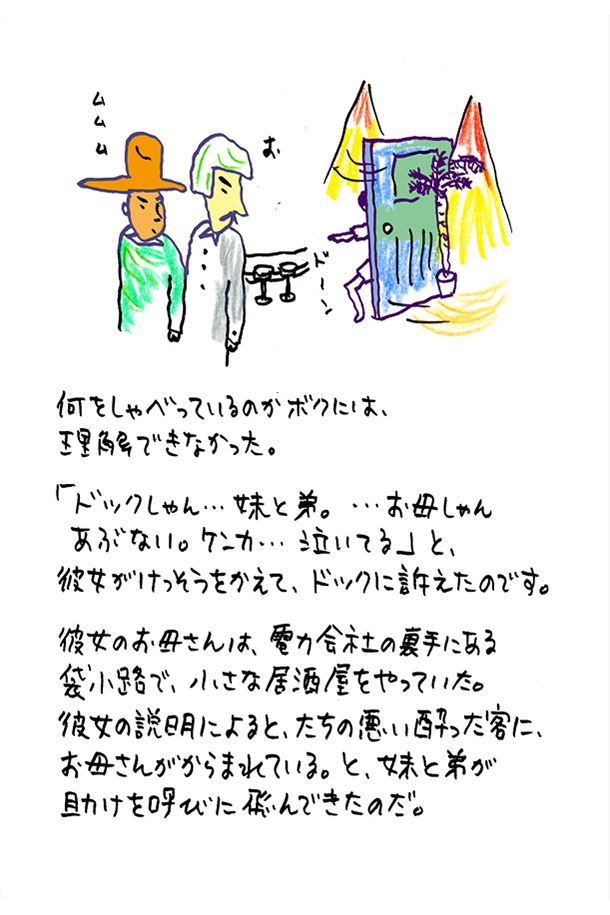 ムムム
お
ドーン
何をしゃべっているのかボクには、
理解できなかった。
「ドックしゃん…妹と弟。…お母しゃん
あぶない。ケンカ…泣いてる」と、
彼女がけっそうをかえて、ドックに訴えたのです。
彼女のお母さんは、電力会社の裏手にある
袋小路で、小さな居酒屋をやっていた。
彼女の説明によると、たちの悪い酔った客に、
お母さんがからまれている。と、妹と弟が
助けを呼びに飛んできたのだ。